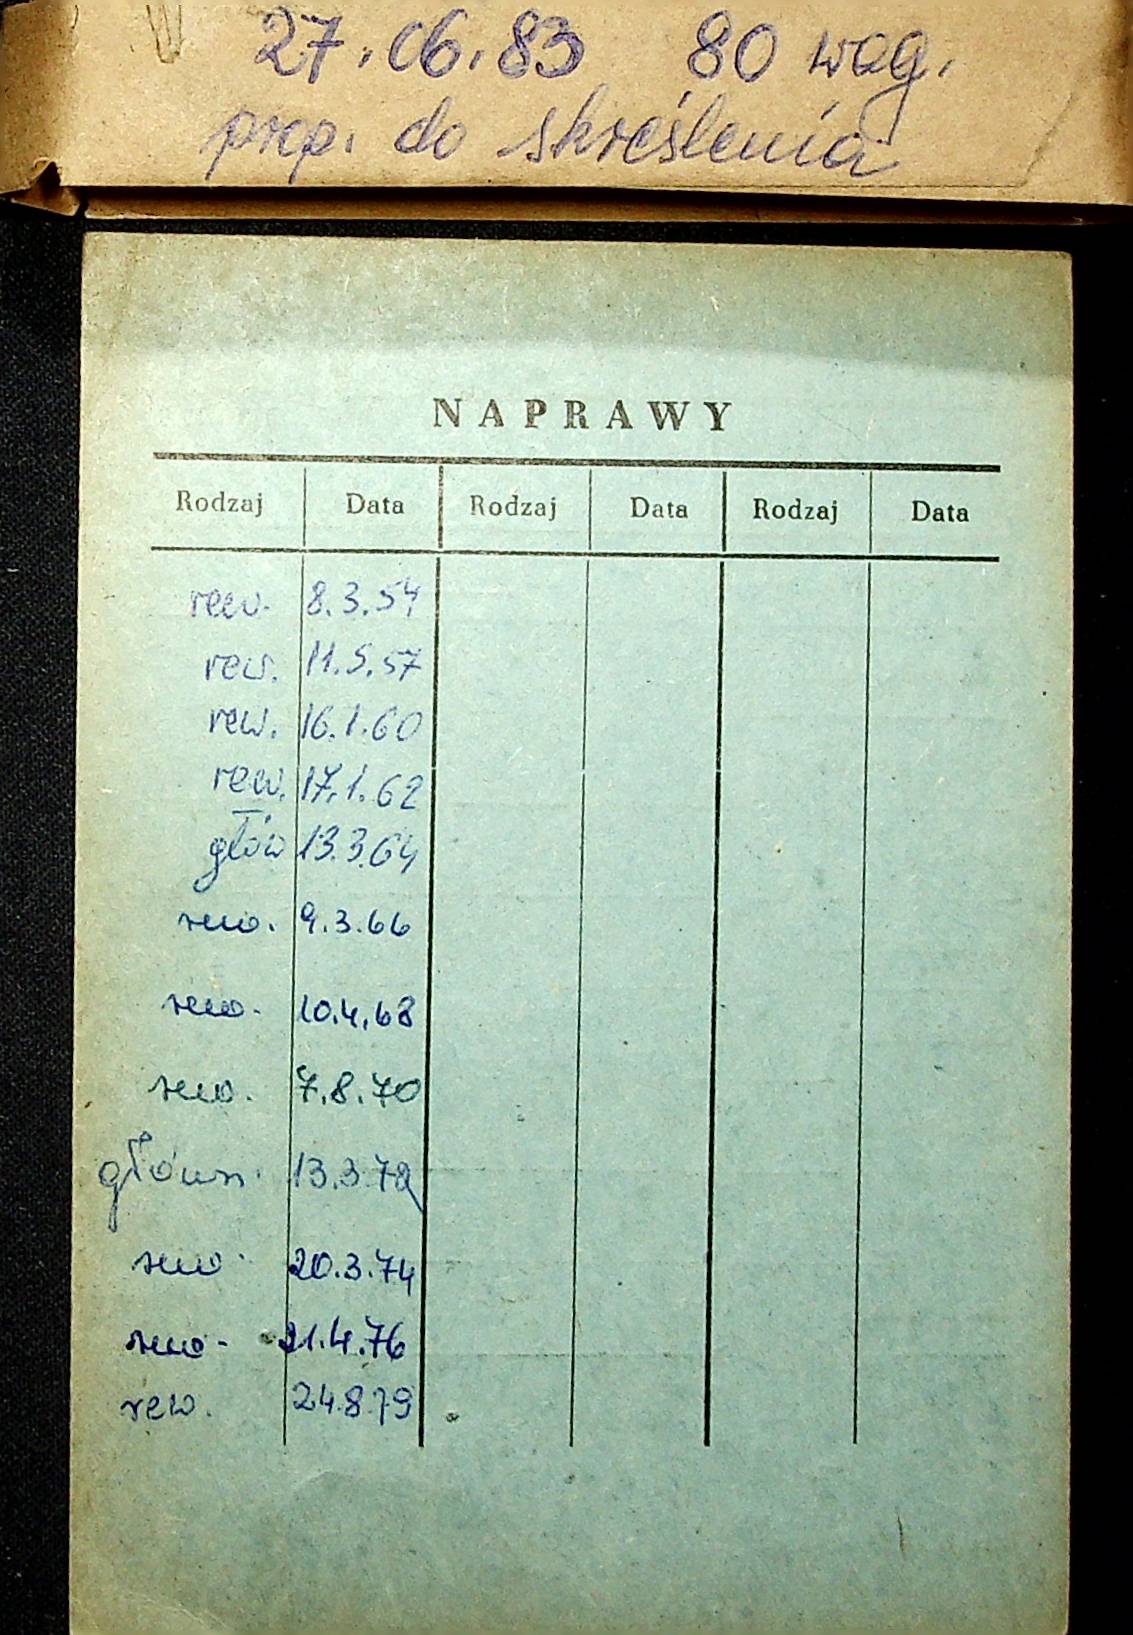 27.06.83 80 wag.
prop. do skreślenia
NAPRAWY
Rodzaj Data Rodzaj Data Rodzaj Data
rew. 8.3.54
rew. 11.5.57
rew. 16.1.60
rew. 17.1.62
głów 13.3.64
rew. 9.3.66
rew. 10.4.68
rew. 7.8.70
główn. 13.3.72
rew. 20.3.74
rew. 21.4.76
rew. 24.8.79